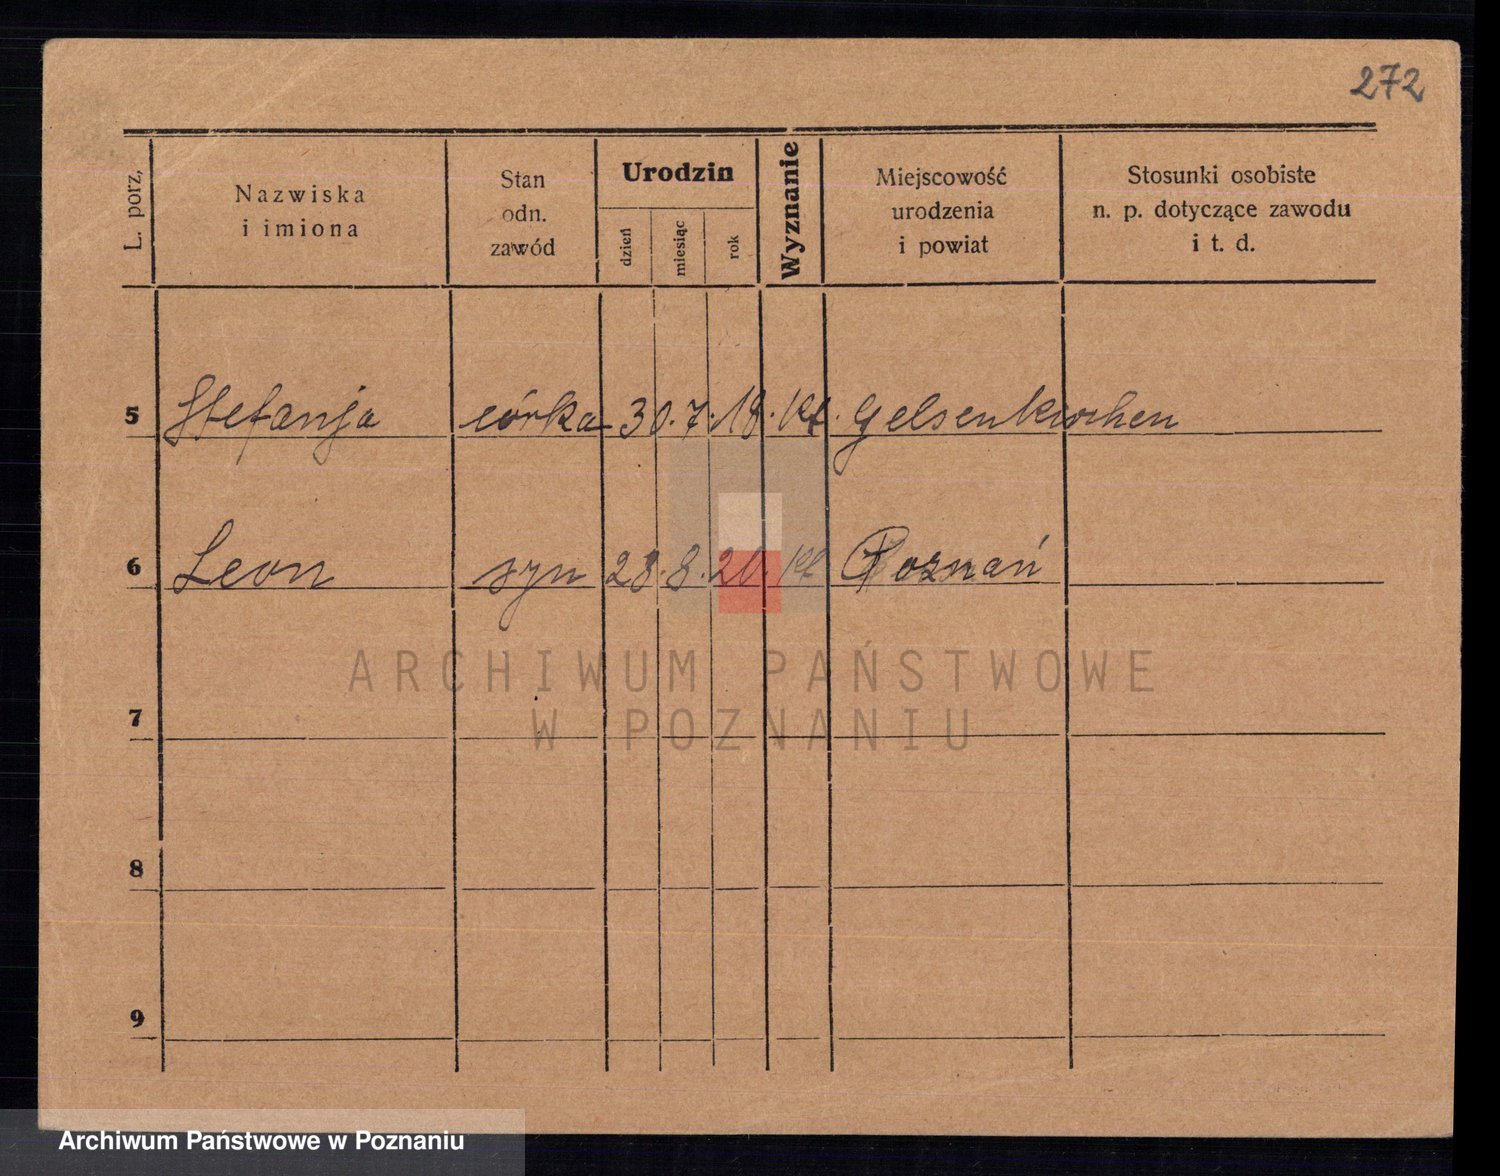 272
L. porz,
Nazwiska
i imiona
Stan
odn.
zawód
Urodzin
dzień
miesiąc
rok
Wyznanie
Miejscowość
urodzenia
i powiat
Stosunki osobiste
n. p. dotyczące zawodu
i t. d.
5 Stefanja córka 30. 7. 18. kt. Gelsenkirchen
6 Leon syn 28. 8. 20. kt Poznań
ARCHIWUM PAŃSTWOWE
W POZNANIU
7
8
9
Archiwum Państwowe w Poznaniu